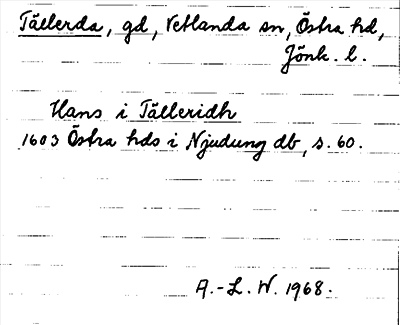 Tällerda, gd, Vetlanda sn, Östra hd,
Jönk. l.
Hans i Tälleridh
1603 Östra hds i Njudung db, s. 60.
A.-L. W. 1968.